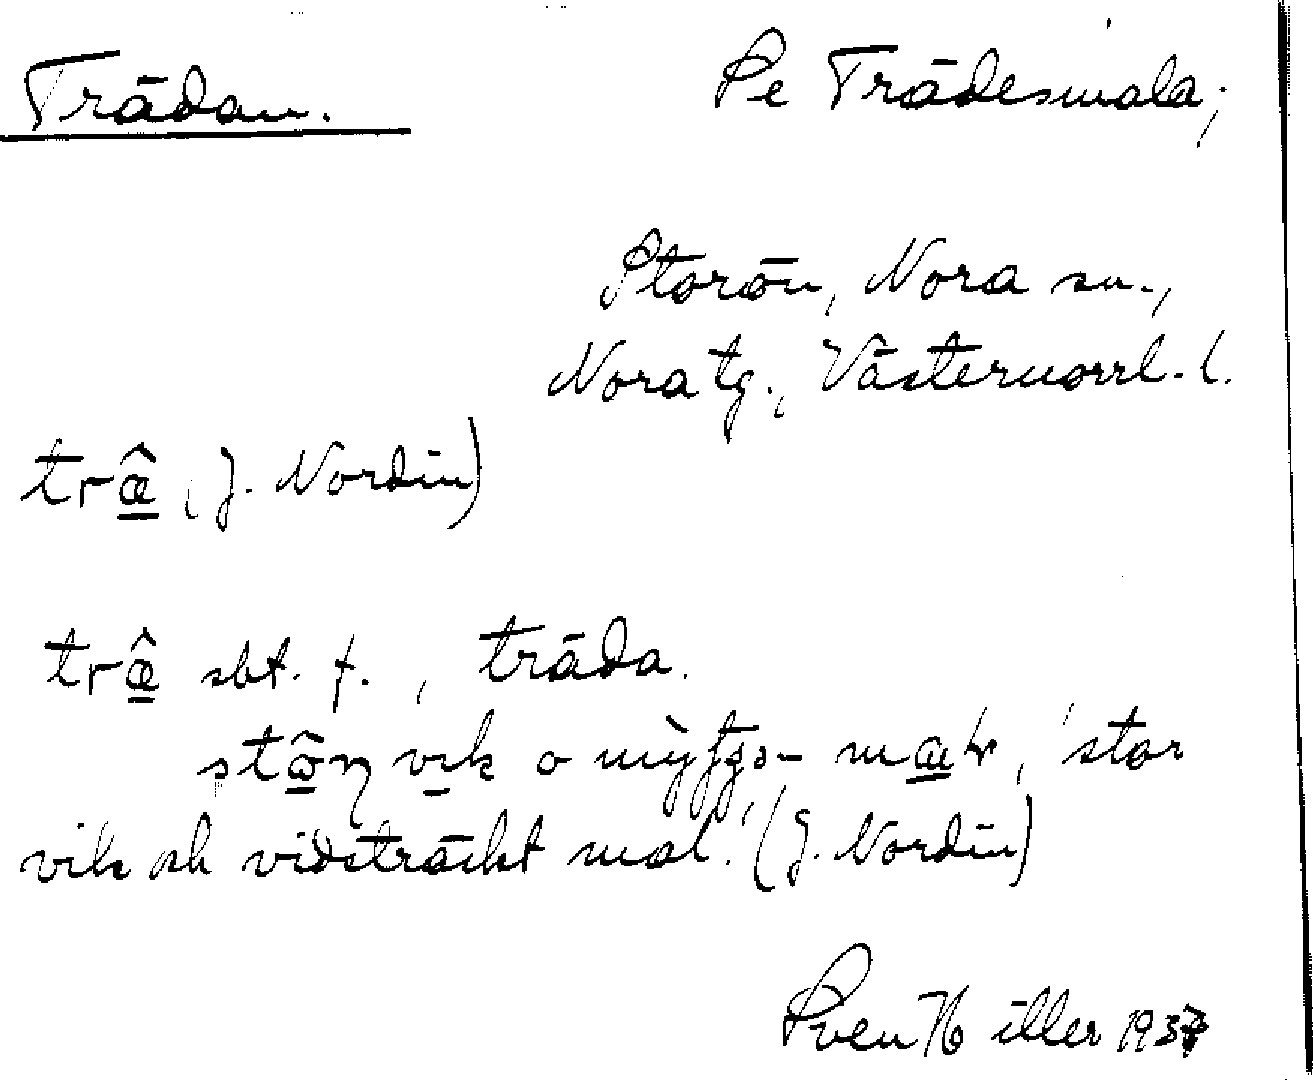 Trädan.
Se Trädesmala;
Storön, Nora sn.,
Nora tg., Västernorrl. l.
træ̂ (J. Nordin)
træ̂ sbt. f., träda.
vik o
'stor
vik och vidsträckt mal.' (J. Nordin)
Sven Hiller 1937